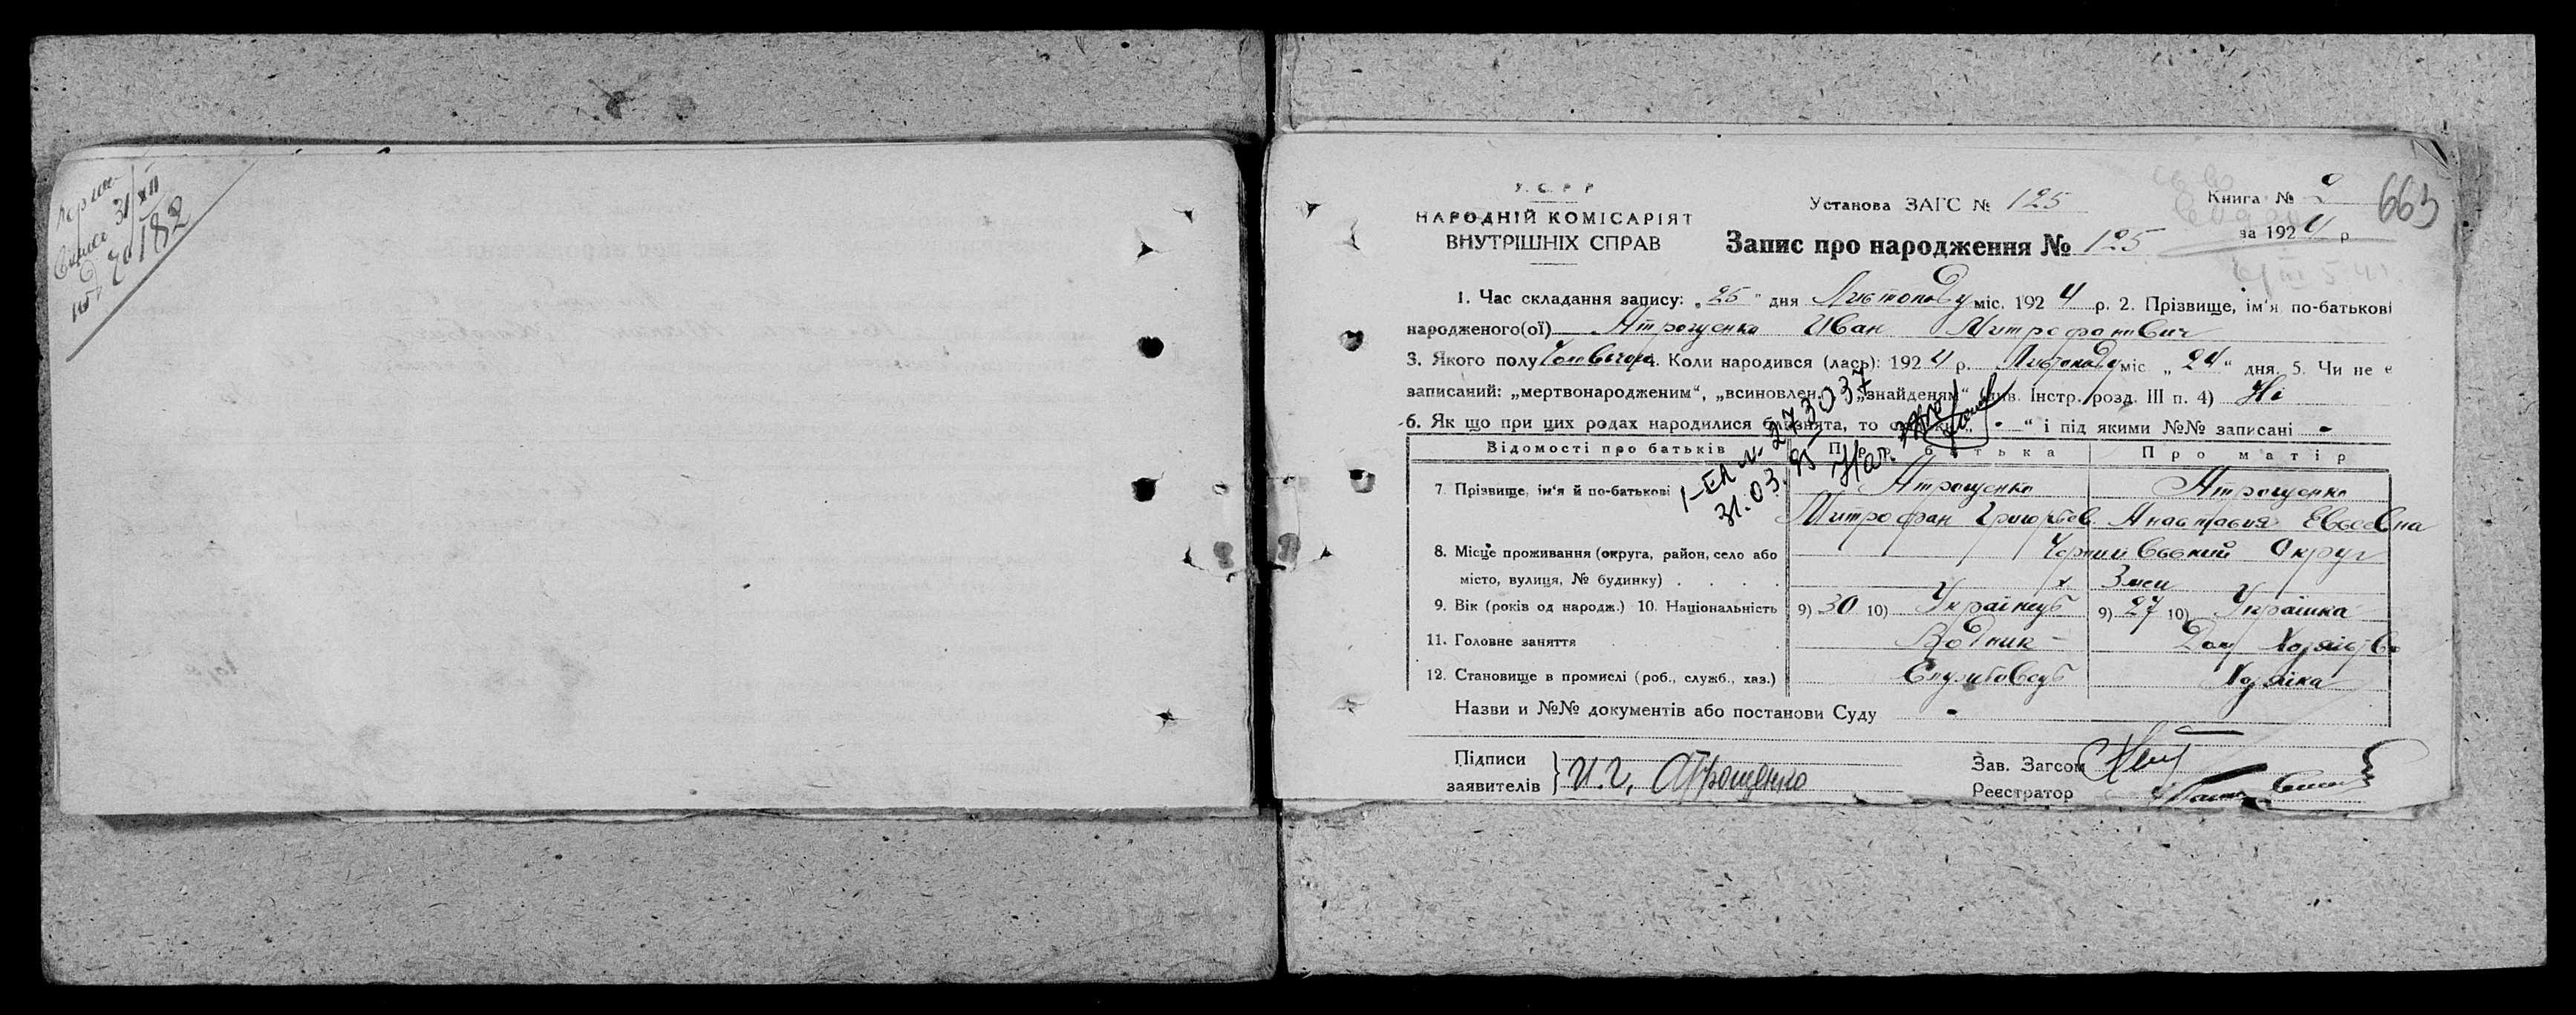 31/XII
20182
У. С. Р. Р.
НАРОДНІЙ КОМІСАРІЯТ
ВНУТРІШНІХ СПРАВ
Установа ЗАГС № 125
Книга № 2
663
за 1924 р
Запис про народження № 125
1. Час складання запису: „25" дня Листопаду міс. 1924 р. 2. Прізвище, ім'я по-батькові
народженого(ої) Атрощенко Иван Митрофанович
3. Якого полу Чоловічого 4. Коли народився (лась): 1924 р. Листопаду міс „24" дня. 5. Чи не є
записаний: „мертвонародженим", „всиновлен. „знайденям" див. Інстр. розд. III п. 4) Ні
6. Як що при цих родах народилися близнята, то скільки „ - " і під якими №№ записані -
I-ЕЛ № 273037
31.03.95
Відомості про батьків
Про батька
Про матір
7. Прізвище, ім'я й по-батькові
Атрощенко
Атрощенко
Митрофан Григорьев.
Анастасия Евсеевна
8. Місце проживання (округа, район, село або
місто, вулиця, № будинку)
Округ
х.
9. Вік (років од народж.) 10. Національність
9) 30 10) Українець
9) 27 10) Українка
11. Головне заняття
Водник
Дом
12. Становище в промислі (роб., служб., хаз.)
Службовець
Хазяйка
Назви и №№ документів або постанови Суду -
Підписи
заявителів
И. Г. Атрощенко
Зав. Загсом
Реєстратор